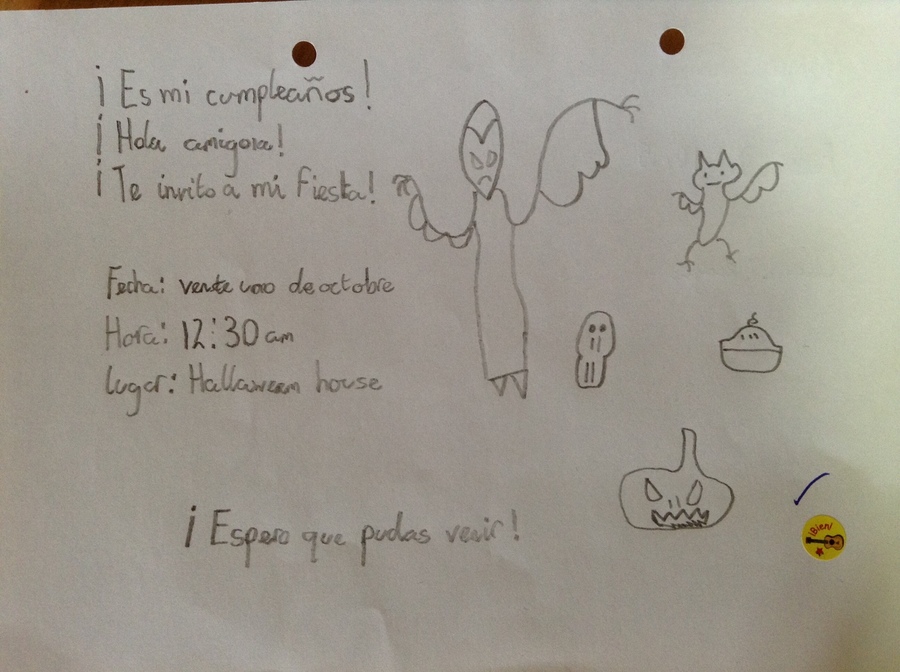 ¡Es mi cumpleaños!
¡Hola amigora!
¡Te invito a mi fiesta!
Fecha: vente uno de octobre
Hora: 12:30 am
Lugar: Hallaween house
¡Espero que pudas venir!
¡Bien!